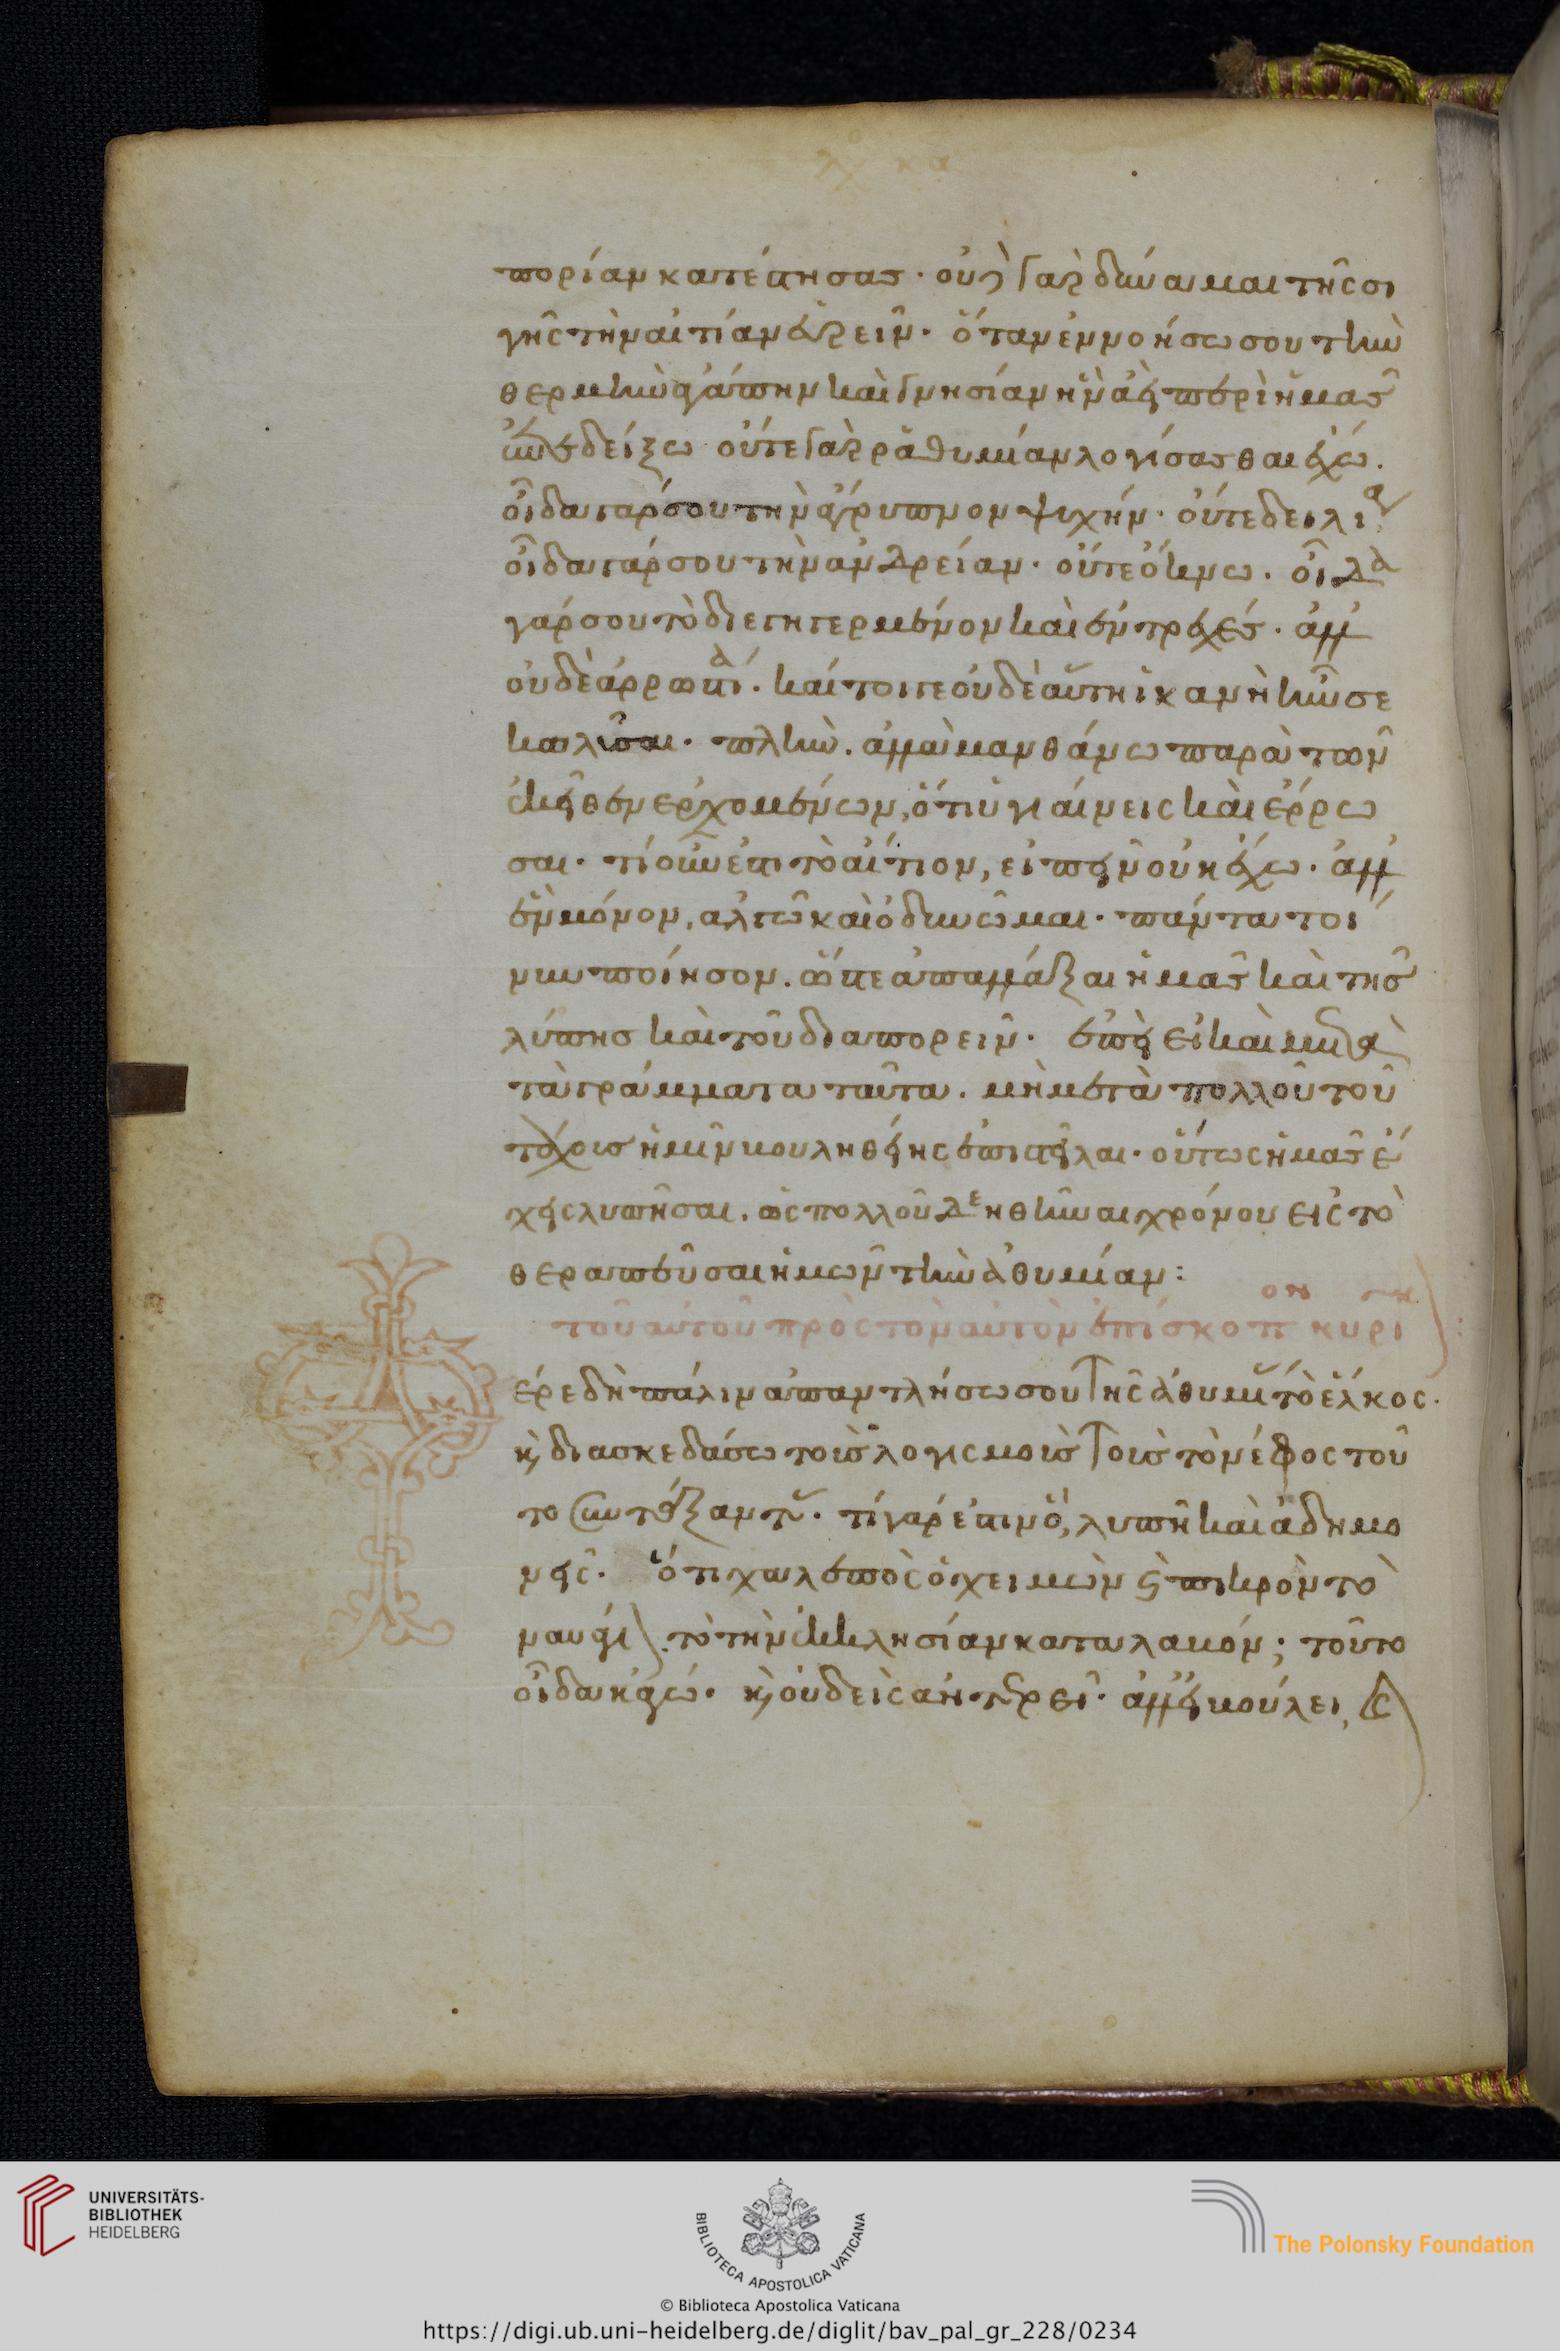 πορίαν κατέστησας· οὐδὲ γὰρ δύναμαι τῆς σι
γῆς τὴν αἰτίαν εὑρεῖν· ὅταν ἐννοήσω σου τὴν
θερμὴν ἀγάπην καὶ γνησίαν ἣν ἀεὶ περὶ ἡμᾶς
ἐπεδείξω οὔτε γὰρ ῥαθυμίαν λογίσασθαι ἔχω.
οἶδα γάρ σου τὴν ἄγρυπνον ψυχήν· οὔτε δειλίαν
οἶδα γάρ σου τὴν ἀνδρείαν· οὔτε ὄκνω. οἶδα
γάρ σου τὸ διεγηγερμένον καὶ εὐτρεχές· ἀλλ
οὐδὲ ἀρρωστίαν. καίτοιγε οὐδὲ αὕτη ἱκανὴ ἦν σε
κωλῦσαι· πλὴν. ἀλλὰ μανθάνω παρὰ τῶν
ἐκεῖθεν ἐρχομένων, ὅτι ὑγιαίνεις καὶ ἔρρω
σαι· τί οὖν ἐστι τὸ αἴτιον, εἰπεῖν οὐκ ἔχω· ἀλλ
ἓν μόνον, ἀλγῶ καὶ ὀδυνῶμαι· πάντα τοί
νυν ποίησον. ὥστε ἀπαλλάξαι ἡμᾶς καὶ τῆς
λύπης καὶ τοῦ διαπορεῖν· ἐπεὶ εἰ καὶ μετὰ
τὰ γράμματα ταῦτα. μὴ μετὰ πολλοῦ τοῦ
τάχους ἡμῖν βουληθείης ἐπιστεῖλαι· οὕτως ἡμᾶς ἔ
χεις λυπῆσαι. ὡς πολλοῦ δεηθῆναι χρόνου εἰς τὸ
θεραπεῦσαι ἡμῶν τὴν ἀθυμίαν:
τοῦ αὐτοῦ πρὸς τὸν αὐτὸν ἐπίσκοπον
Φέρε δὴ πάλιν ἀπαντλήσω σου τῆς ἀθυμίας τὸ ἕλκος.
κ διασκεδάσω τοὺς λογισμοὺς τοὺς τὸ νέφος τοῦ
το συντάξαντας. τί γάρ ἐστιν ὃ λυπεῖ καὶ ἀδημο
νεῖς. ὅτι χαλεπὸς ὁ χειμὼν κ πικρὸν τὸ
ναυάγιον. τὸ τὴν ἐκκλησίαν καταλαβόν; τοῦτο
οἶδα κἀγώ. κ οὐδεὶς ἀντερεῖ· ἀλλ εἰ βούλει,
UNIVERSITÄTS-
BIBLIOTHEK
HEIDELBERG
BIBLIOTECA APOSTOLICA VATICANA
The Polonsky Foundation
© Biblioteca Apostolica Vaticana
https://digi.ub.uni-heidelberg.de/diglit/bav_pal_gr_228/0234